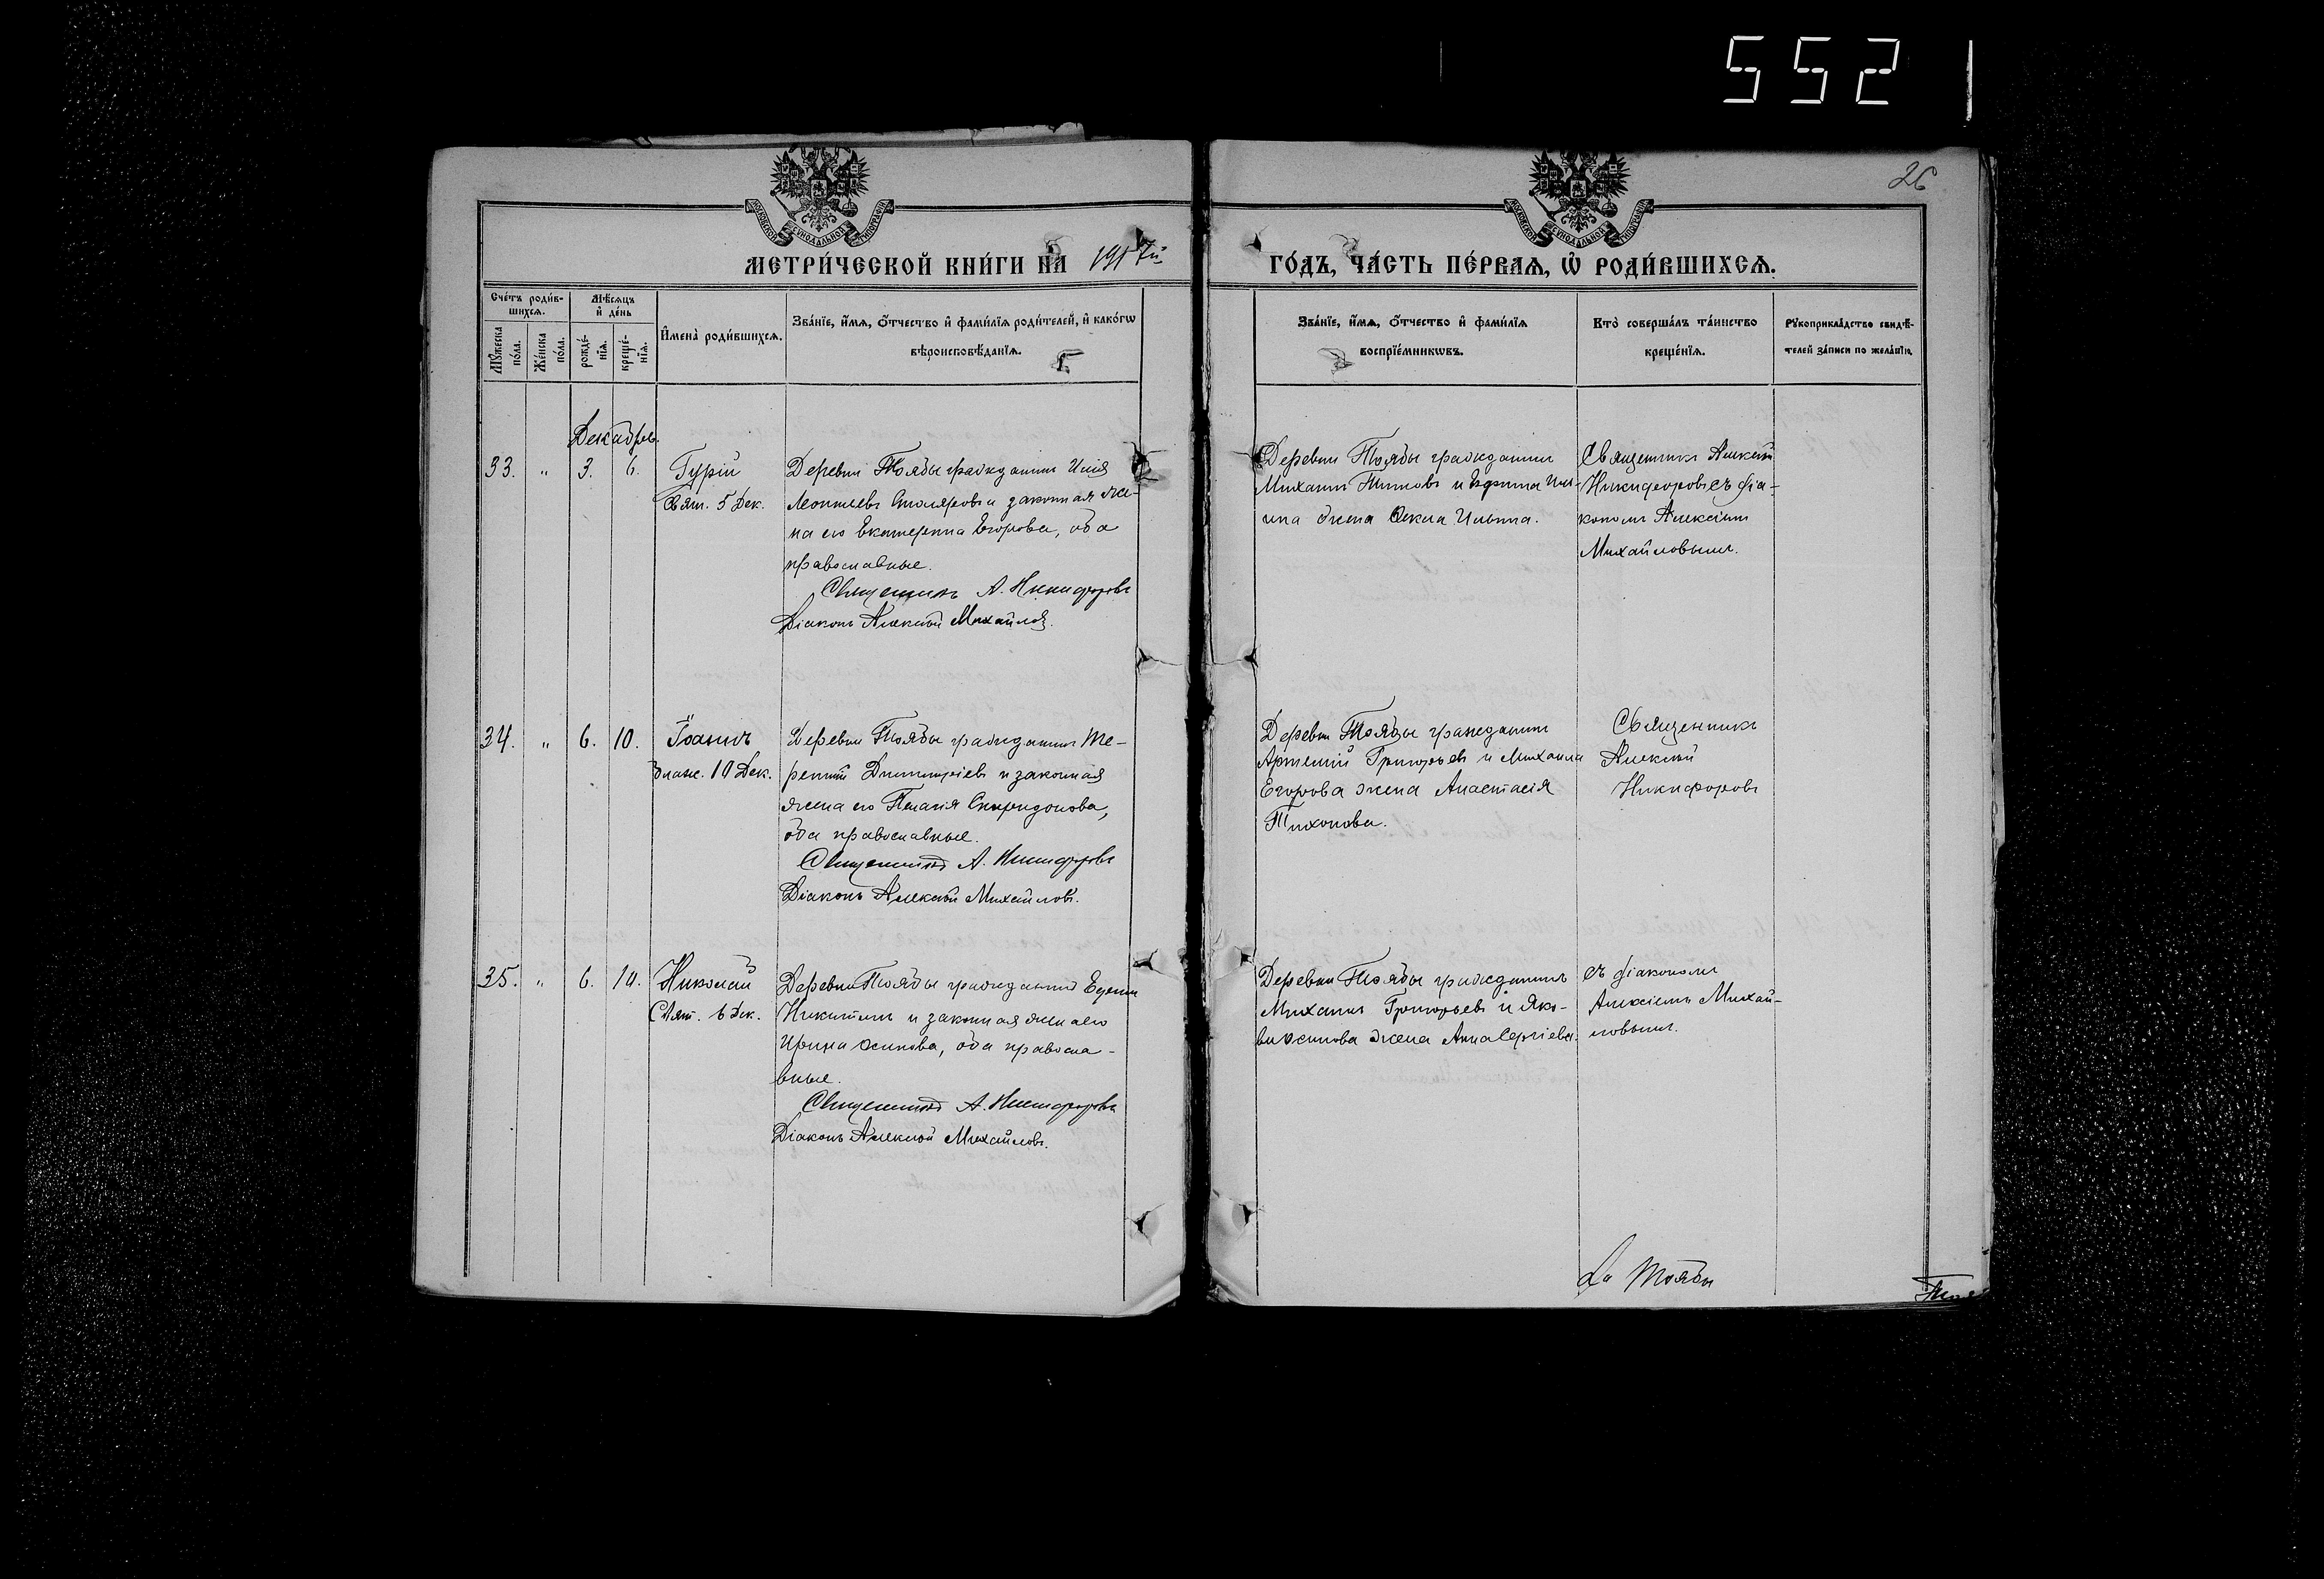 5521
26
МОСКОВСКОЙ СѴНОДАЛЬНОЙ ТИПОГРАФІИ
МОСКОВСКОЙ СѴНОДАЛЬНОЙ ТИПОГРАФІИ
МЕТРИ́ЧЕСКОЙ КНИ́ГИ НА 1917й
ГО́ДЪ, ЧА́СТЬ ПЕ́РВАЯ, Ѡ҆ РОДИ́ВШИХСЯ.
Сче́тъ роди́в-
шихся.
Мѣ́сяцъ
и҆ де́нь
Мꙋ́жеска
по́ла.
Же́нска
по́ла.
рожде́-
нїя.
креще́-
нїя.
И҆мена̀ роди́вшихся.
Зва́нїе, и҆́мя, о҆́тчество и҆ фами́лїя роди́телей, и҆ како́гѡ
вѣроисповѣ́данїя.
Зва́нїе, и҆́мя, о҆́тчество и҆ фами́лїя
воспрїе́мникѡвъ.
Кто̀ соверша́лъ та́инство
креще́нїя.
Рꙋкоприкла́дство свидѣ́-
телей за́писи по жела́нїю.
Декабрь.
33. " 3. 6. Гурій
Свят. 5 Дек.
Деревни Тоябы гражданинъ Илія
Леонтьевъ Столяровъ и законная же-
на его Екатерина Егорова, оба
православные.
Священникъ А. Никифоровъ
Діаконъ Алексѣй Михайловъ.
Деревни Тоябы гражданинъ
Михаилъ Титовъ и
жена Ильина.
Священникъ Алексѣй
Никифоровъ съ діа-
кономъ Алексіемъ
Михайловымъ.
34. " 6. 10. Іоаннъ
10 Дек.
Деревни Тоябы гражданинъ Те-
рентій Димитріевъ и законная
жена его Пелагія Спиридонова,
оба православные.
Священникъ А. Никифоровъ
Діаконъ Алексѣй Михайловъ.
Деревни Тоябы гражданинъ
Артемій Григорьевъ и Михаила
Егорова жена Анастасія
Тихонова.
Священникъ
Алексѣй
Никифоровъ
35. " 6. 10. Николай
Свят. 6 Дек.
Деревни Тоябы гражданинъ
Никитинъ и законная жена его
Ирина Осипова, оба правосла-
вные.
Священникъ А. Никифоровъ
Діаконъ Алексѣй Михайловъ.
Деревни Тоябы гражданинъ
Михаилъ Григорьевъ и Яко-
ва Осипова жена Анна Сергіева.
съ діакономъ
Алексіемъ Михай-
ловымъ.
Тоябы